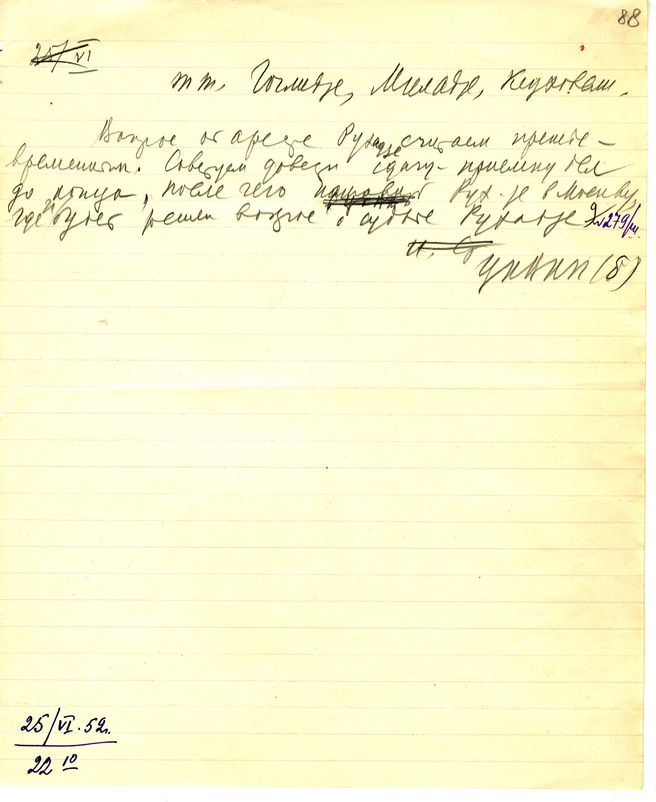 88
25/VI
тт. Гоглидзе, Мгеладзе, Кецховели.
Вопрос об аресте Рухадзе считаем прежде-
временным. Советуем довести сдачу-приемку дел
до конца, после чего Рух-дзе в Москву,
где и будет решен вопрос о судьбе Рухадзе
И. Ст
ЦК ВКП(б)
25/VI.52г.
22 10